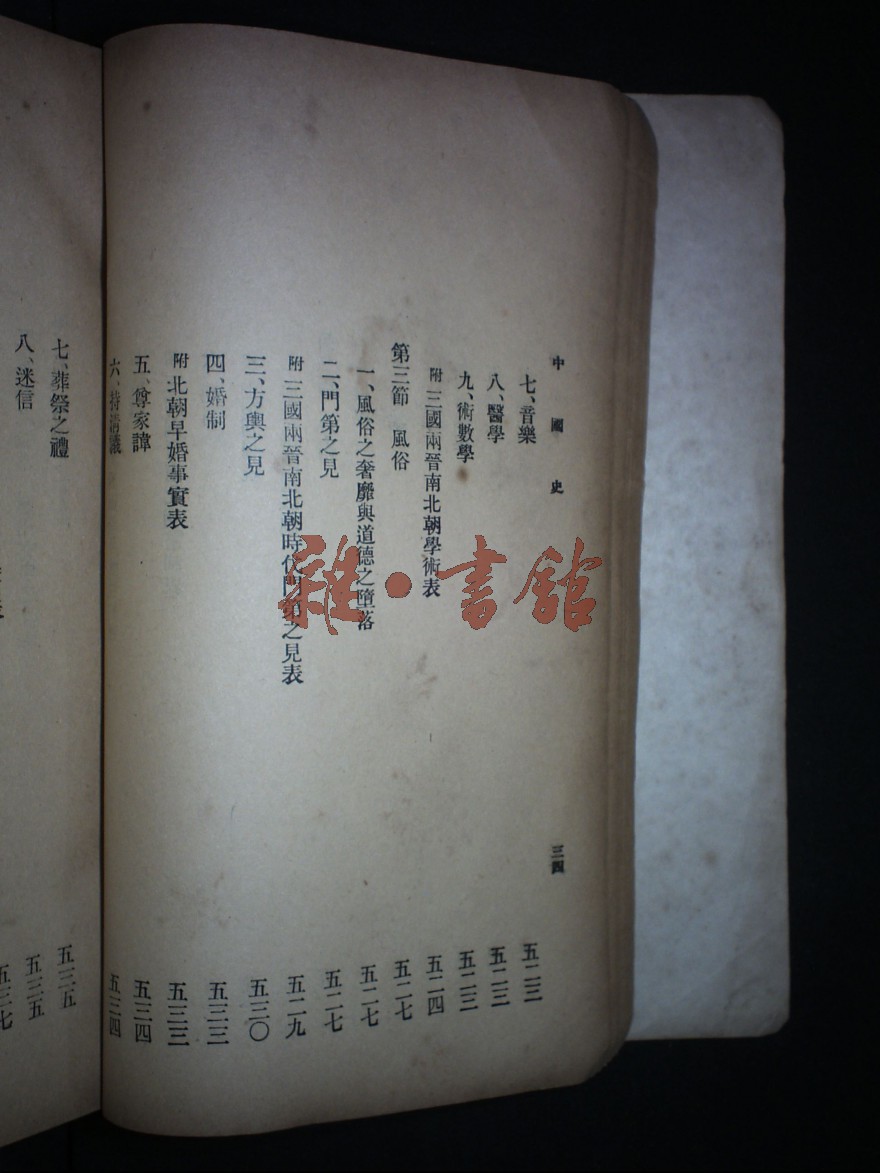 中國史
三四
七、音樂 五二三
八、醫學 五二三
九、術數學 五二三
附 三國兩晉南北朝學術表 五二四
第三節 風俗 五二七
一、風俗之奢靡與道德之墮落 五二七
二、門第之見 五二七
附 三國兩晉南北朝時代門第之見表 五二九
三、方輿之見 五三〇
四、婚制 五三三
附 北朝早婚事實表 五三三
五、尊家諱 五三四
六、 五三四
七、葬祭之禮 五三五
八、迷信 五三五
五三七
雜·書館